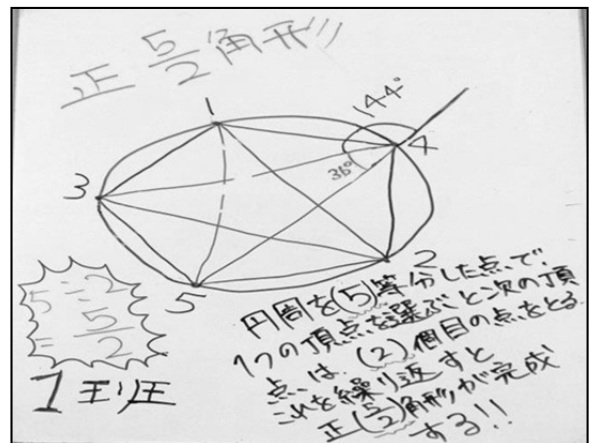 正 5/2 角形
1
144°
36°
4
3
2
5
5÷2
= 5/2
円周を(5)等分した点で、
1つの頂点を選ぶと次の頂
点は、(2)個目の点をとる
これを繰り返すと
正(5/2)角形が完成
する!!